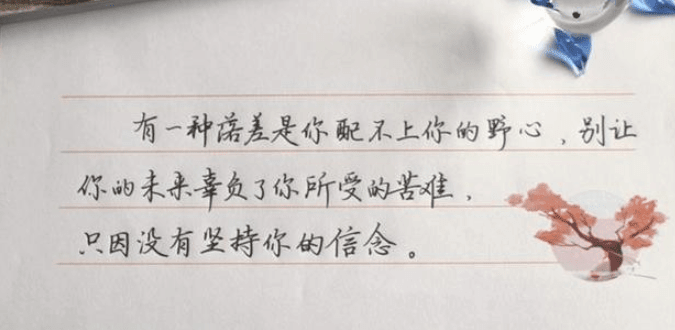 有一种落差是你配不上你的野心，别让
你的未来辜负了你所受的苦难，
只因没有坚持你的信念。